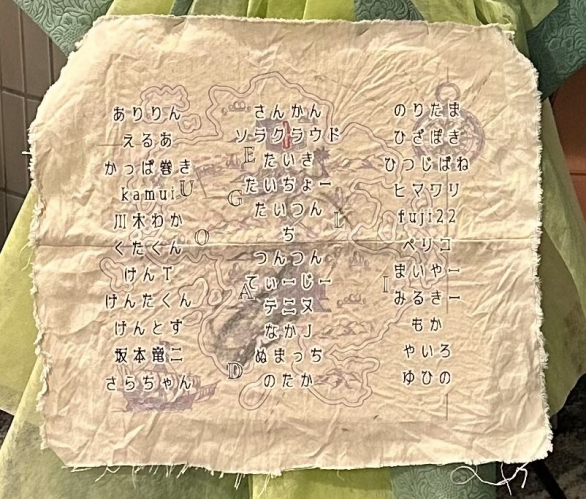 ありりん
えるあ
かっぱ巻き
kamui
川木わか
くたくん
けんT
けんたくん
けんとす
坂本竜二
さらちゃん
さんかん
ソラクラウド
たいき
たいちょー
たいつん
ち
つんつん
てぃーじー
テニヌ
なかJ
ぬまっち
のたか
のりたま
ひざぽき
ひつじぱね
ヒマワリ
fuji22
ペリコ
まいやー
みるきー
もか
やいろ
ゆひの
E
U
G
L
O
A
I
D